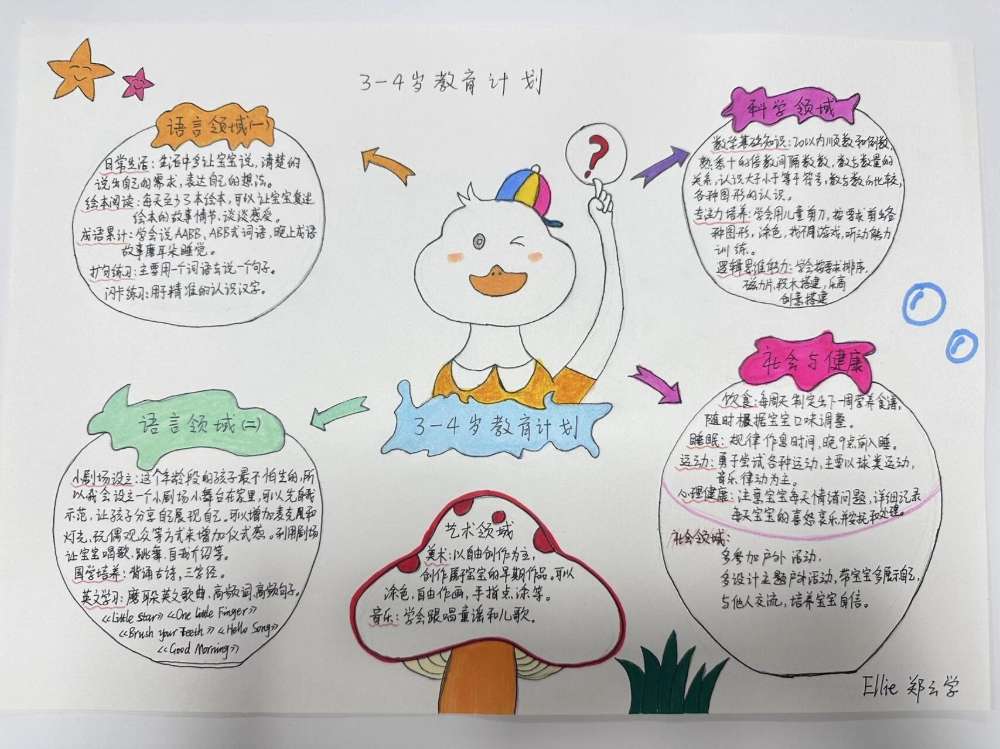 3-4岁教育计划
语言领域(一)
日常生活：生活中多让宝宝说，清楚的
说出自己的需求，表达自己的想法。
绘本阅读：每天至少3本绘本，可以让宝宝复述
绘本的故事情节、谈谈感爱。
成语累计：学会说AABB、ABB式词语，晚上成语
故事磨耳朵睡觉。
扩句练习：主要用一个词语去说一个句子。
闪卡练习：用于精准的认识汉字。
科学领域
数学基础知识：20以内顺数和倒数，
熟悉十的倍数间隔数数，数与数量的
关系，认识大于小于等于符号，数与数的比较，
各种图形的认识。
专注力培养：学会用儿童剪刀，按要求剪出各
种图形，涂色，找不同游戏，听动能力
训练。
逻辑思维能力：学会按要求排序，
磁力片、积木搭建，乐高
创意搭建
?
语言领域(二)
小剧场设立：这个年龄段的孩子最不怕生的，所
以我会设立一个小剧场小舞台在家里，可以先自我
示范，让孩子分享自己展现自己。可以增加麦克风和
灯光，玩偶观众等方式来增加仪式感。利用剧场
让宝宝唱歌，跳舞，自我介绍等。
国学培养：背诵古诗，三字经。
英文学习：磨耳朵英文歌曲，高频词，高频句子。
《Little star》《One little Finger》
《Brush your teeth》《Hello Song》
《Good Morning》
3-4岁教育计划
社会与健康
饮食：每周天制定出下一周营养食谱，
随时根据宝宝口味调整。
睡眠：规律作息时间，晚9点前入睡。
运动：勇于尝试各种运动，主要以球类运动，
音乐律动为主。
心理健康：注意宝宝每天情绪问题，详细记录
每天宝宝的喜怒哀乐，并安抚和处理。
社会领域：
多参加户外活动，
多设计主题户外活动，带宝宝多展示自己，
与他人交流，培养宝宝自信。
艺术领域
美术：以自由创作为主，
创作属于宝宝的早期作品，可以
涂色，自由作画，手指点涂等。
音乐：学会跟唱童谣和儿歌。
Ellie 郑云学